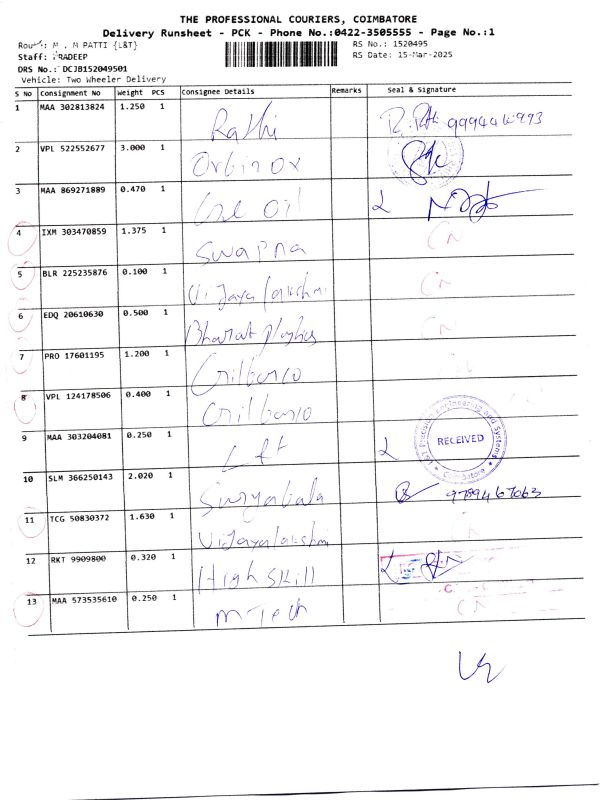 THE PROFESSIONAL COURIERS, COIMBATORE
Delivery Runsheet - PCK - Phone No.:0422-3505555 - Page No.:1
Route: M . M PATTI {L&T} RS No.: 1520495
Staff: PRADEEP RS Date: 15-Mar-2025
DRS No.: DCJB152049501
Vehicle: Two Wheeler Delivery
S No Consignment No Weight PCS Consignee Details Remarks Seal & Signature
1 MAA 302813824 1.250 1 Rathi
2 VPL 522552677 3.000 1 Orbinox
3 MAA 869271889 0.470 1 Oil
4 IXM 303470859 1.375 1 Swapna CN
5 BLR 225235876 0.100 1 Vijayalakshmi CN
6 EDQ 20610630 0.500 1 Bharat CN
7 PRO 17601195 1.200 1 Gilbarco
8 VPL 124178506 0.400 1 Gilbarco
9 MAA 303204081 0.250 1 L&t L&T Precision Engineering and Systems RECEIVED Coimbatore
10 SLM 366250143 2.020 1 Suryabala 9789467063
11 TCG 50830372 1.630 1 Vijayalakshmi CN
12 RKT 9909800 0.320 1 High skill
13 MAA 573535610 0.250 1 m-Tech CN